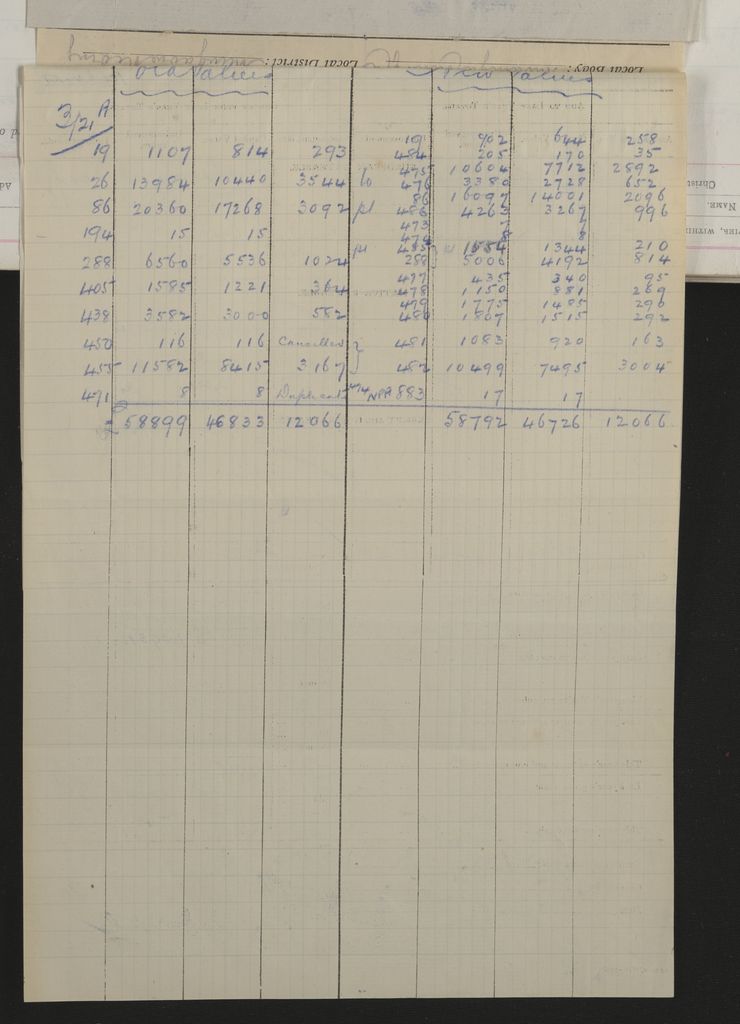 Local Body: Local District:
Old Values New Values
3/21 A
19 1107 814 293 19 902 644 258
484 205 170 35
26 13984 10440 3544 to 475 10604 7712 2892
476 3380 2728 652
86 20360 17268 3092 pt 86 16097 14001 2096
486 4263 3267 996
194 15 15 473 7 7
474 8 8
288 6560 5536 1024 pt 485 1554 1344 210
288 5006 4192 814
405 1585 1221 364 477 435 340 95
478 1150 881 269
438 3582 3000 582 479 1775 1485 290
480 1807 1515 292
450 116 116 Cancelled 481 1083 920 163
455 11582 8415 3167 482 10499 7495 3004
471 8 8 Duplicate 474 NPA 883 17 17
58899 46833 12066 58792 46726 12066